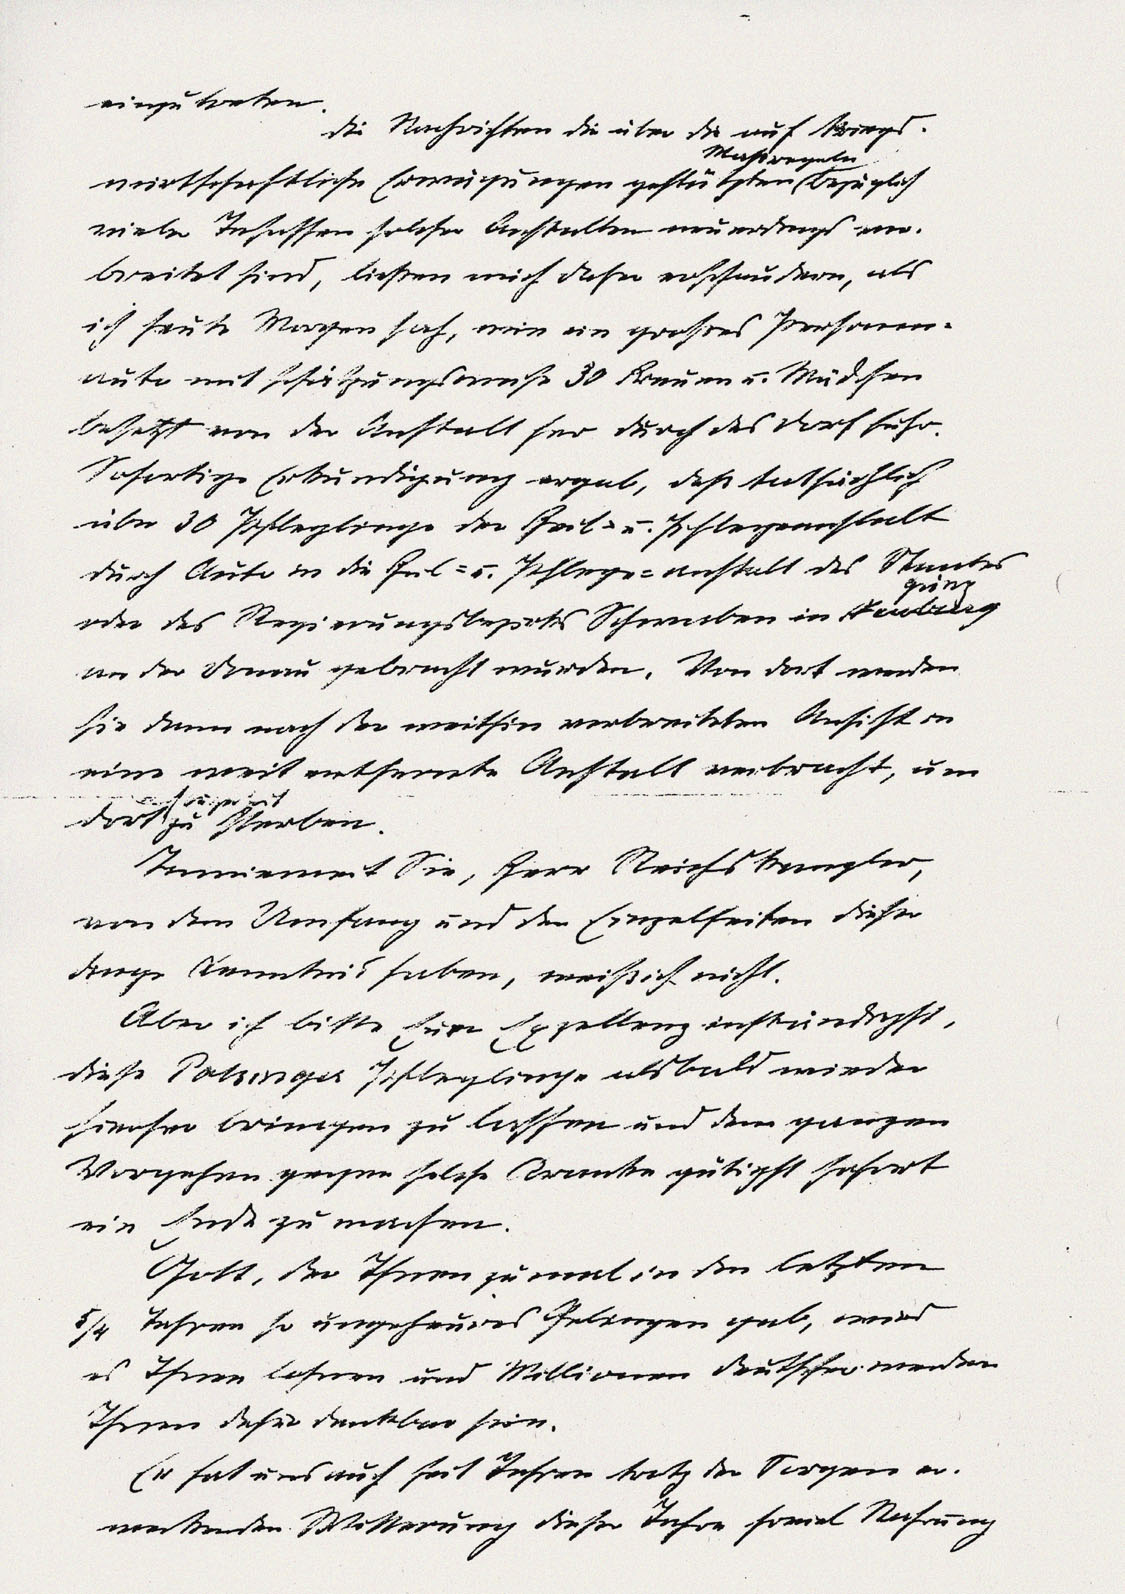 einzutreten.
Die Nachrichten die über die auf kriegs-
Massregeln
wirtschaftliche Erwägungen gestützten (bezüglich
vieler Insassen solcher Anstalten neuerdings ver-
breitet sind, ließen mich daher erschaudern, als
ich heute Morgen sah, wie ein großes Personen-
auto mit schätzungsweise 30 Frauen u. Mädchen
besetzt von der Anstalt her durch das Dorf fuhr.
Sofortige Erkundigung ergab, daß tatsächlich
über 30 Pfleglinge der Heil- u. Pflegeanstalt
durch Auto in die Heil- u. Pflege-anstalt des Staates
oder des Regierungsbezirks Schwaben in
an der Donau gebracht wurden. Von dort werden
sie dann nach der weithin verbreiteten Ansicht in
eine weit entfernte Anstalt verbracht, um
dort zu sterben.
Inwieweit Sie, Herr Reichskanzler,
von dem Umfang und den Einzelheiten dieser
Dinge Kenntnis haben, weiß ich nicht.
Aber ich bitte Eure Exzellenz inständigst,
diese Polsinger Pfleglinge alsbald wieder
hierher bringen zu lassen und dem ganzen
Vorgehen gegen solche Kranke gütigst sofort
ein Ende zu machen.
Gott, der Ihnen zumal in den letzten
5/4 Jahren so ungeheures Gelingen gab, wird
es Ihnen lohnen und Millionen Deutscher werden
Ihnen dafür dankbar sein.
Er hat uns auch seit Jahren trotz der Sorgen er-
weckenden Witterung dieser Jahre soviel Nahrung